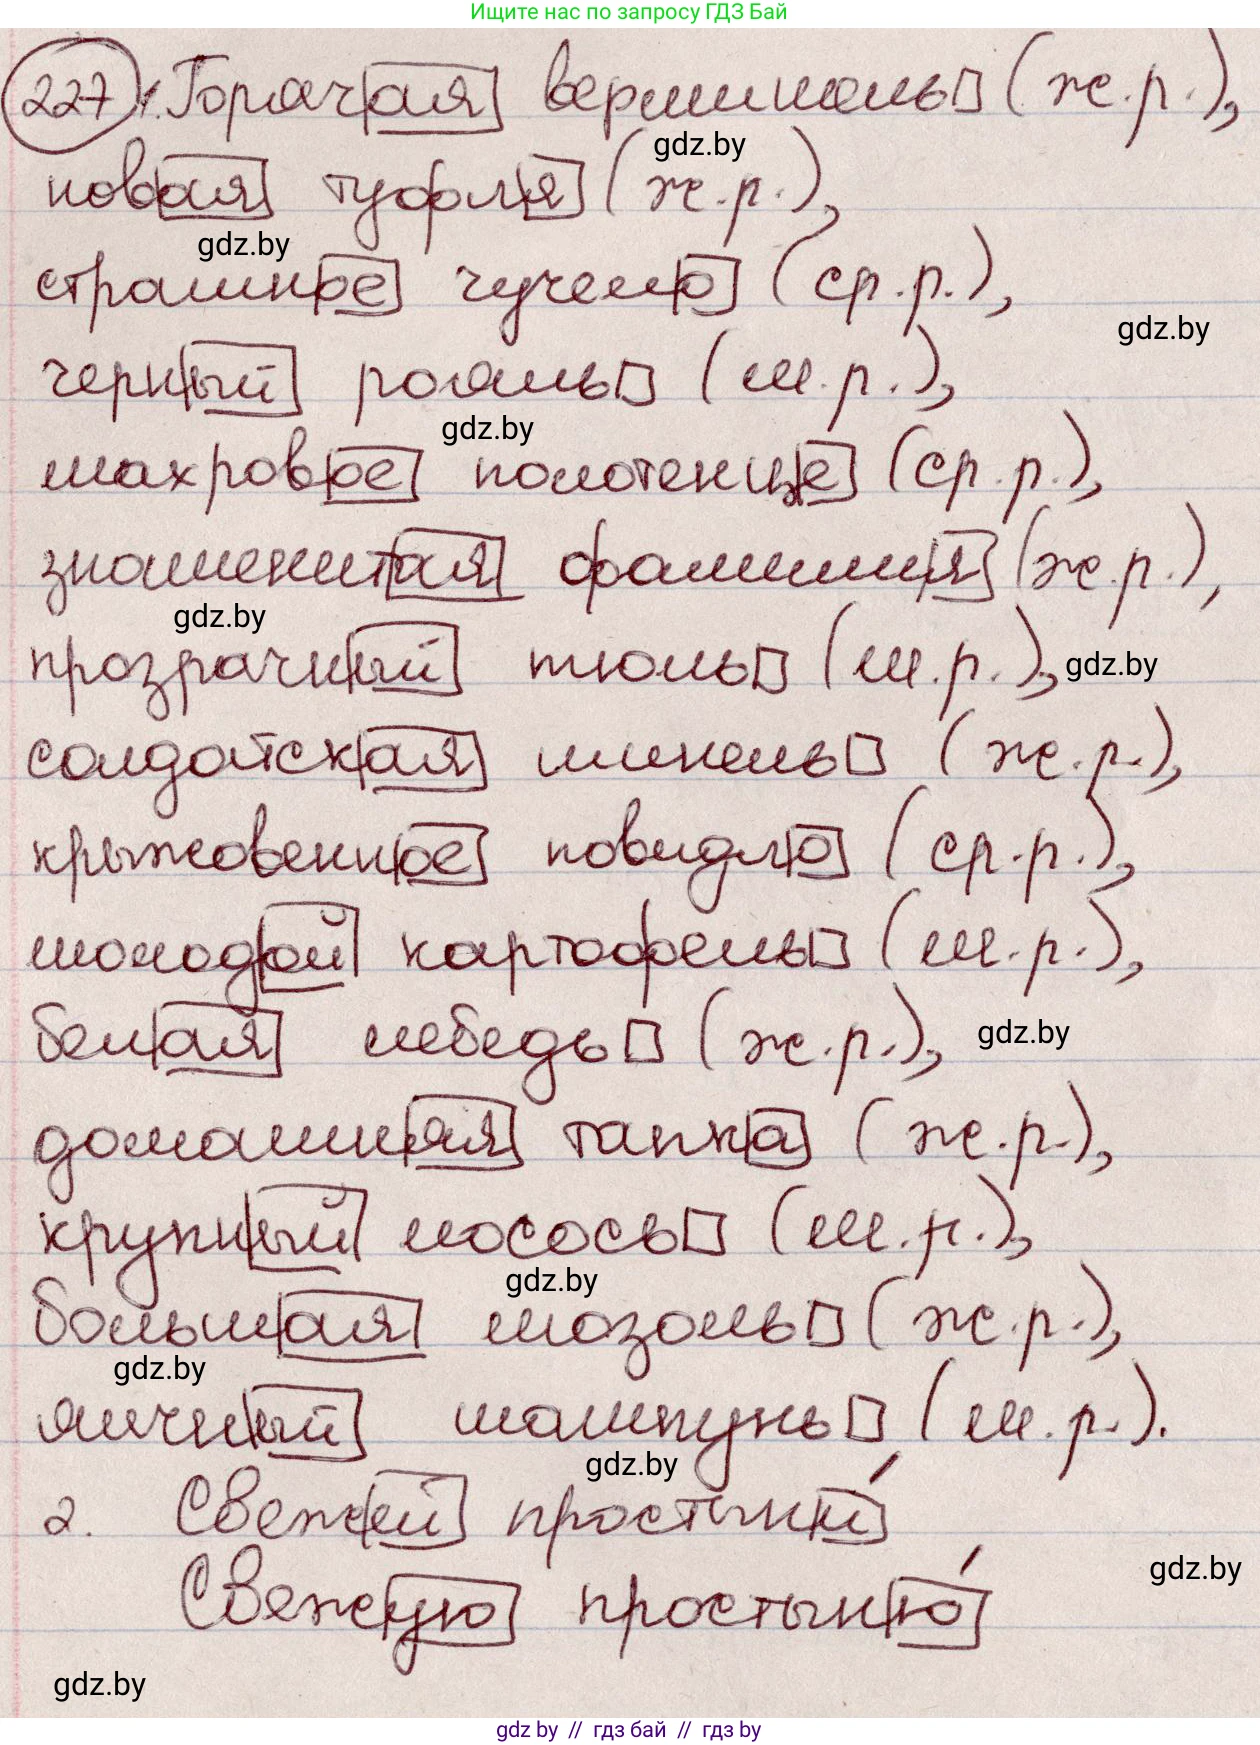 Ищите нас по запросу ГДЗ Бай
227 1. Горячая вермишель (ж.р.),
gdz.by
новая туфля (ж.р.),
gdz.by
страшное чучело (ср.р.),
gdz.by
черный рояль (м.р.),
gdz.by
махровое полотенце (ср.р.),
знаменитая фамилия (ж.р.),
gdz.by
прозрачный тюль (м.р.), gdz.by
солдатская шинель (ж.р.),
крыжовенное повидло (ср.р.),
молодой картофель (м.р.),
белая лебедь (ж.р.), gdz.by
домашняя тапка (ж.р.),
крупный лосось (м.р.),
gdz.by
большая мозоль (ж.р.),
gdz.by
яичный шампунь (м.р.).
gdz.by
2. Свежей простыни́
gdz.by
Свежую простыню́
gdz.by
gdz by // гдз бай // гдз by